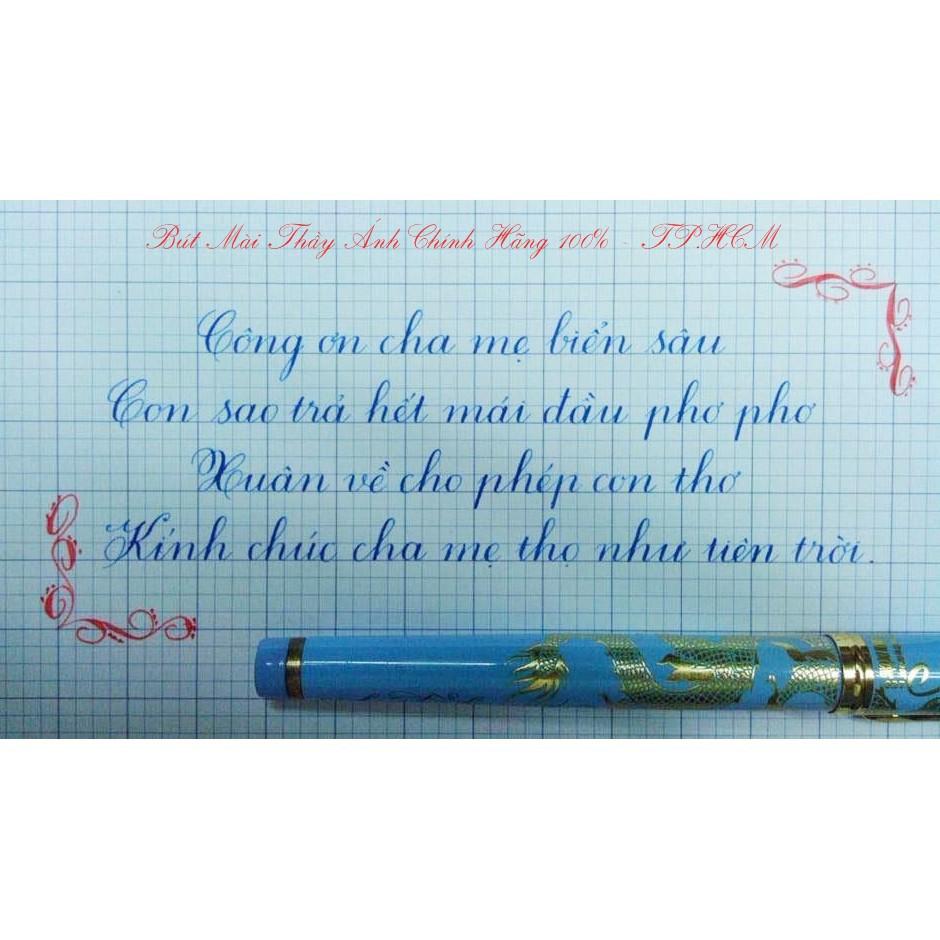 Bút Mài Thầy Ánh Chính Hãng 100% - TP.HCM
Công ơn cha mẹ biển sâu
Con sao trả hết mái đầu phơ phơ
Xuân về cho phép con thơ
Kính chúc cha mẹ thọ như tiên trời.